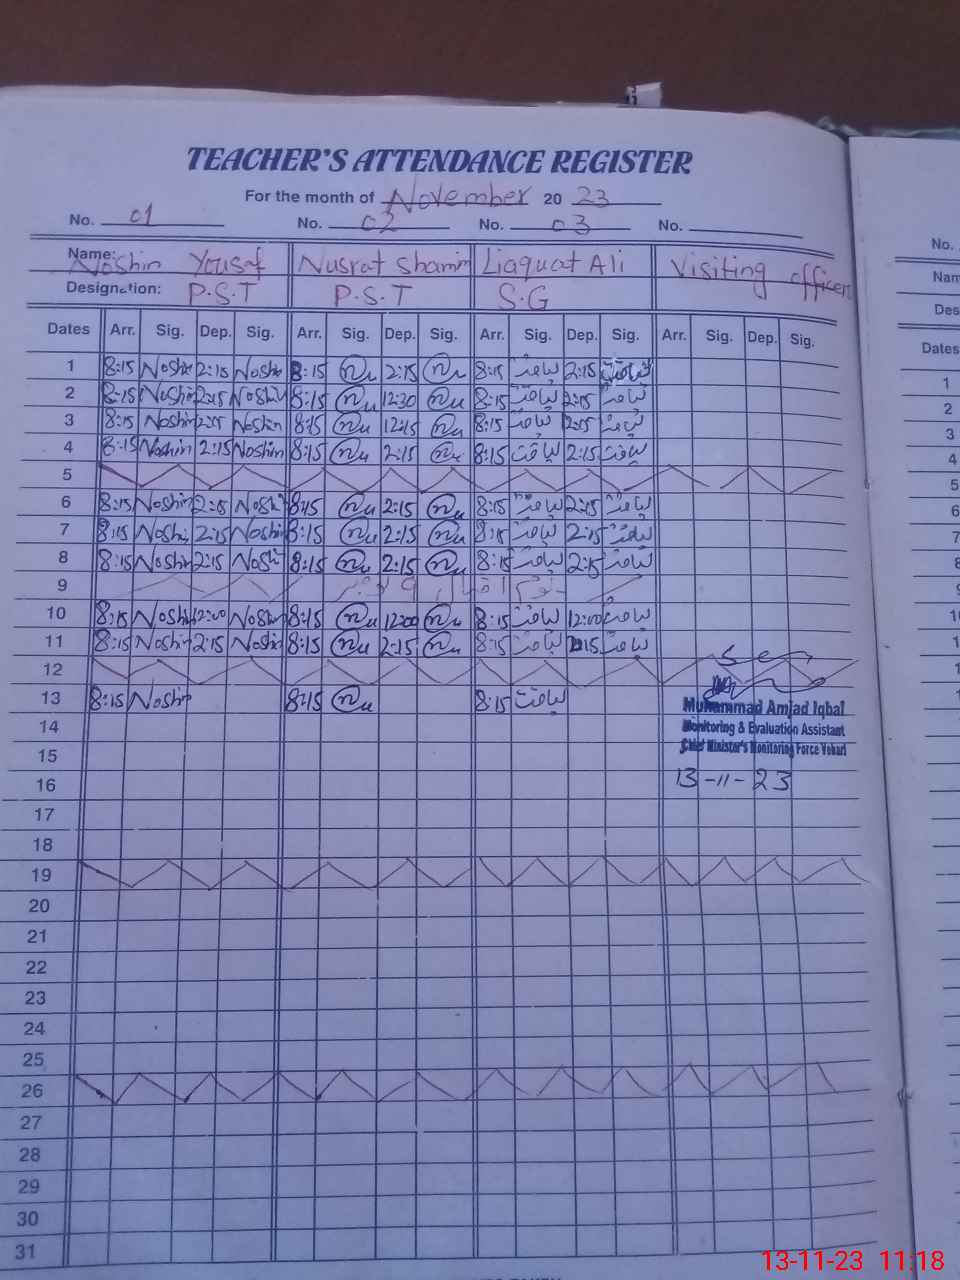 TEACHER'S ATTENDANCE REGISTER
For the month of November 20 23
No. 01 No. 02 No. 03 No.
Name: Noshin Yousaf Nusrat Shamim Liaquat Ali Visiting officers
Designation: P.S.T P.S.T S.G
Dates Arr. Sig. Dep. Sig. Arr. Sig. Dep. Sig. Arr. Sig. Dep. Sig. Arr. Sig. Dep. Sig.
1 8:15 Noshin 2:15 Noshin 8:15 2:15 8:15 لیاقت 2:15 لیاقت
2 8:15 Noshin 2:15 Noshin 8:15 12:30 8:15 لیاقت 2:15 لیاقت
3 8:15 Noshin Noshin 8:15 12:15 8:15 لیاقت 2:15 لیاقت
4 8:15 Noshin 2:15 Noshin 8:15 2:15 8:15 لیاقت 2:15 لیاقت
5
6 8:15 Noshin 2:15 Noshin 8:15 2:15 8:15 لیاقت 2:15 لیاقت
7 8:15 Noshin 2:15 Noshin 8:15 2:15 8:15 لیاقت 2:15 لیاقت
8 8:15 Noshin 2:15 Noshin 8:15 2:15 8:15 لیاقت 2:15 لیاقت
9 یوم اقبال 9 نومبر
10 8:15 Noshin 12:00 Noshin 8:15 12:00 8:15 لیاقت 12:00 لیاقت
11 8:15 Noshin 2:15 Noshin 8:15 2:15 8:15 لیاقت 2:15 لیاقت
12
13 8:15 Noshin 8:15 8:15 لیاقت
Muhammad Amjad Iqbal
14
Monitoring & Evaluation Assistant
15
Chief Minister's Monitoring Force Vehari
16 13-11-23
17
18
19
20
21
22
23
24
25
26
27
28
29
30
31
No.
Nam
Des
Dates
1
2
3
4
5
6
7
8
9
13-11-23 11:18